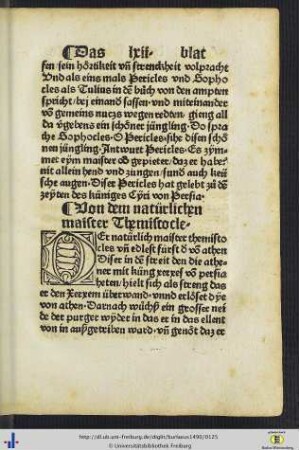 ¶Das lxii· blat
sen sein hörtikeit vñ strenckheit volpracht
Vnd als eins mals Pericles vnd Sopho
cles als Tulius in dē bůch von den ampten
spricht/bej einand sassen/vnd miteinander
võ gemeins nuczs wegen redten/gieng all
da vngebens ein schöner jüngling·Do spra
che Sophocles·O Pericles/sihe disen schö
nen jüngling·Antwurt Pericles·Es zym/
met eym maister od gepieter/daz er habe/
nit allein hend vnd zungen/sund auch keü/
sche augen·Diser Pericles hat gelebt zů dē
zeyten des küniges Cyri von Persia·
¶Von dem natürlichen
maister Themistocle·
DEr natürlich maister themisto
cles vñ edlest fürst õ võ athen
Diser in dē streit den die athe/
ner mit küng xerxes võ persia
heten/hielt sich als streng das
er den Xerxem überwand·vnnd erlößet dye
von athen·Darnach wůchß ein grosser nei
de der purger wyder in das er in das ellent
von in außgetriben ward·vñ genöt daz er
http://dl.ub.uni-freiburg.de/diglit/burlaeus1490/0125
© Universitätsbibliothek Freiburg